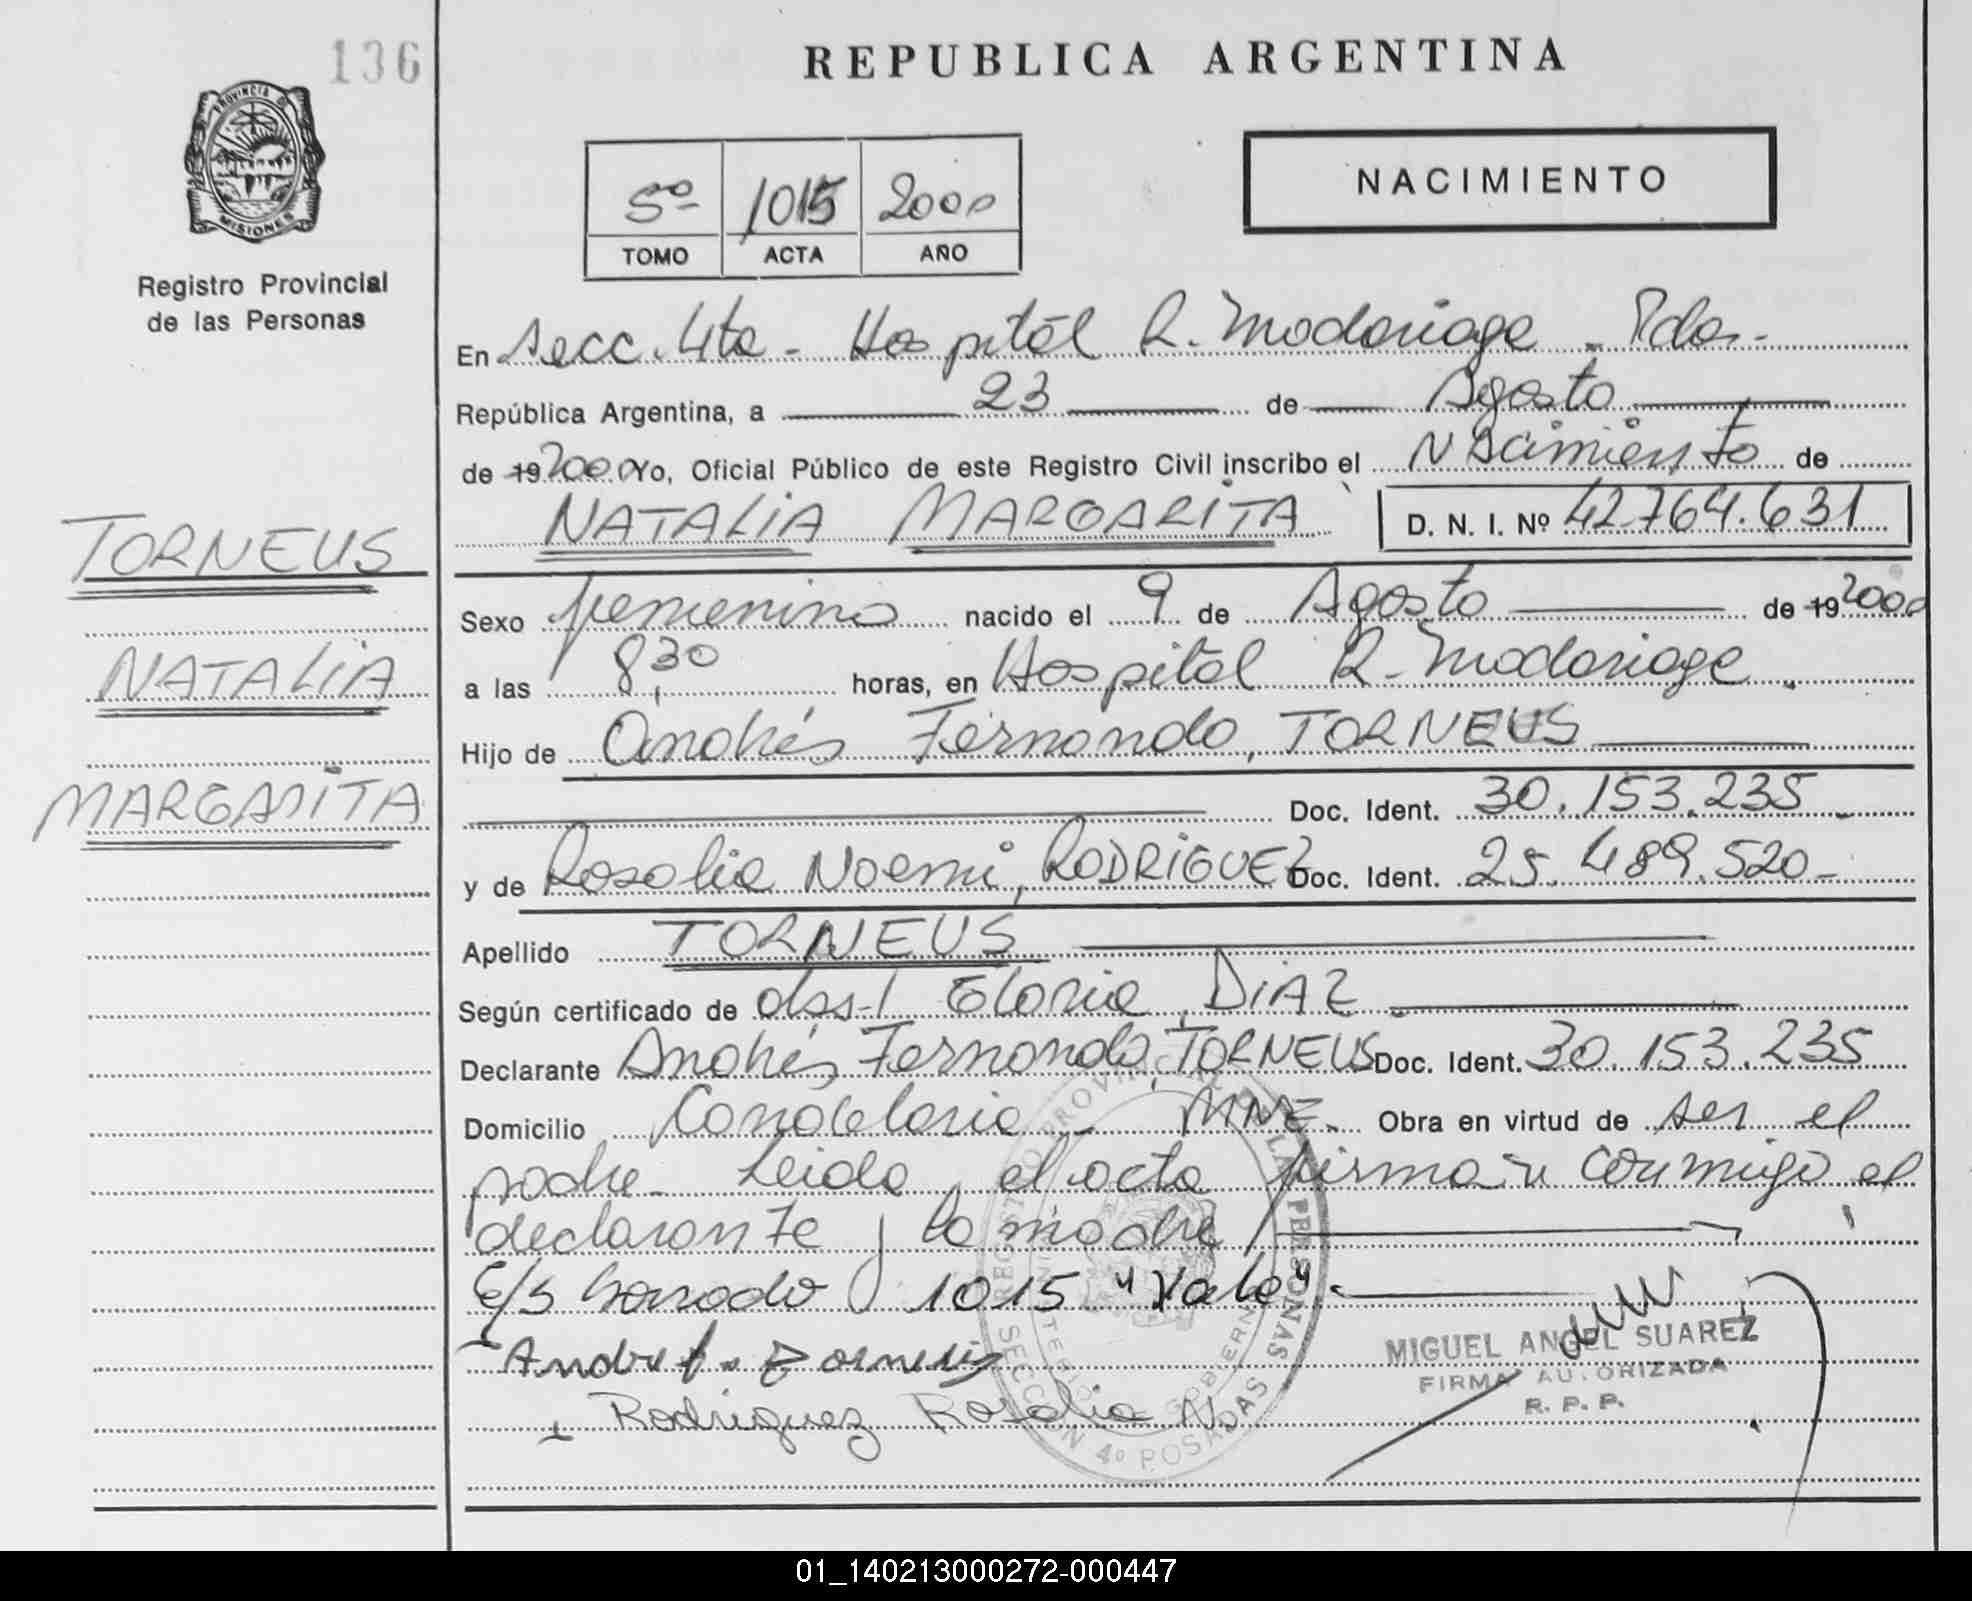 136
REPUBLICA ARGENTINA
PROVINCIA DE
MISIONES
Registro Provincial
de las Personas
5º 1015 2000
TOMO ACTA AÑO
NACIMIENTO
En Secc. 4ta - Hospitál R. Madariaga - Pdas.-
República Argentina, a 23 de Agosto
de 19 2000 Yo, Oficial Público de este Registro Civil inscribo el Nacimiento de
NATALIA MARGARITA D. N. I. Nº 42.764.631
TORNEUS
NATALIA
MARGARITA
Sexo femenino nacido el 9 de Agosto de 19 2000
a las 8,30 horas, en Hospital R. Madariaga.
Hijo de Andrés Fernando, TORNEUS
Doc. Ident. 30.153.235
y de Rosalia Noemi, RODRIGUEZ Doc. Ident. 25.489.520-
Apellido TORNEUS
Según certificado de Gloria, DIAZ
Declarante Andrés Fernando, TORNEUS Doc. Ident. 30.153.235
Domicilio Candelaria - MNE. Obra en virtud de ser el
padre- Leida el acta firman conmigo el
declarante y la madre
E/S borrado 1015 "Vale".
MIGUEL ANGEL SUAREZ
FIRMA AUTORIZADA
R. P. P.
Rodriguez Rosalia N.
REGISTRO PROVINCIAL DE LAS PERSONAS
SECCION 4º POSADAS
01_140213000272-000447